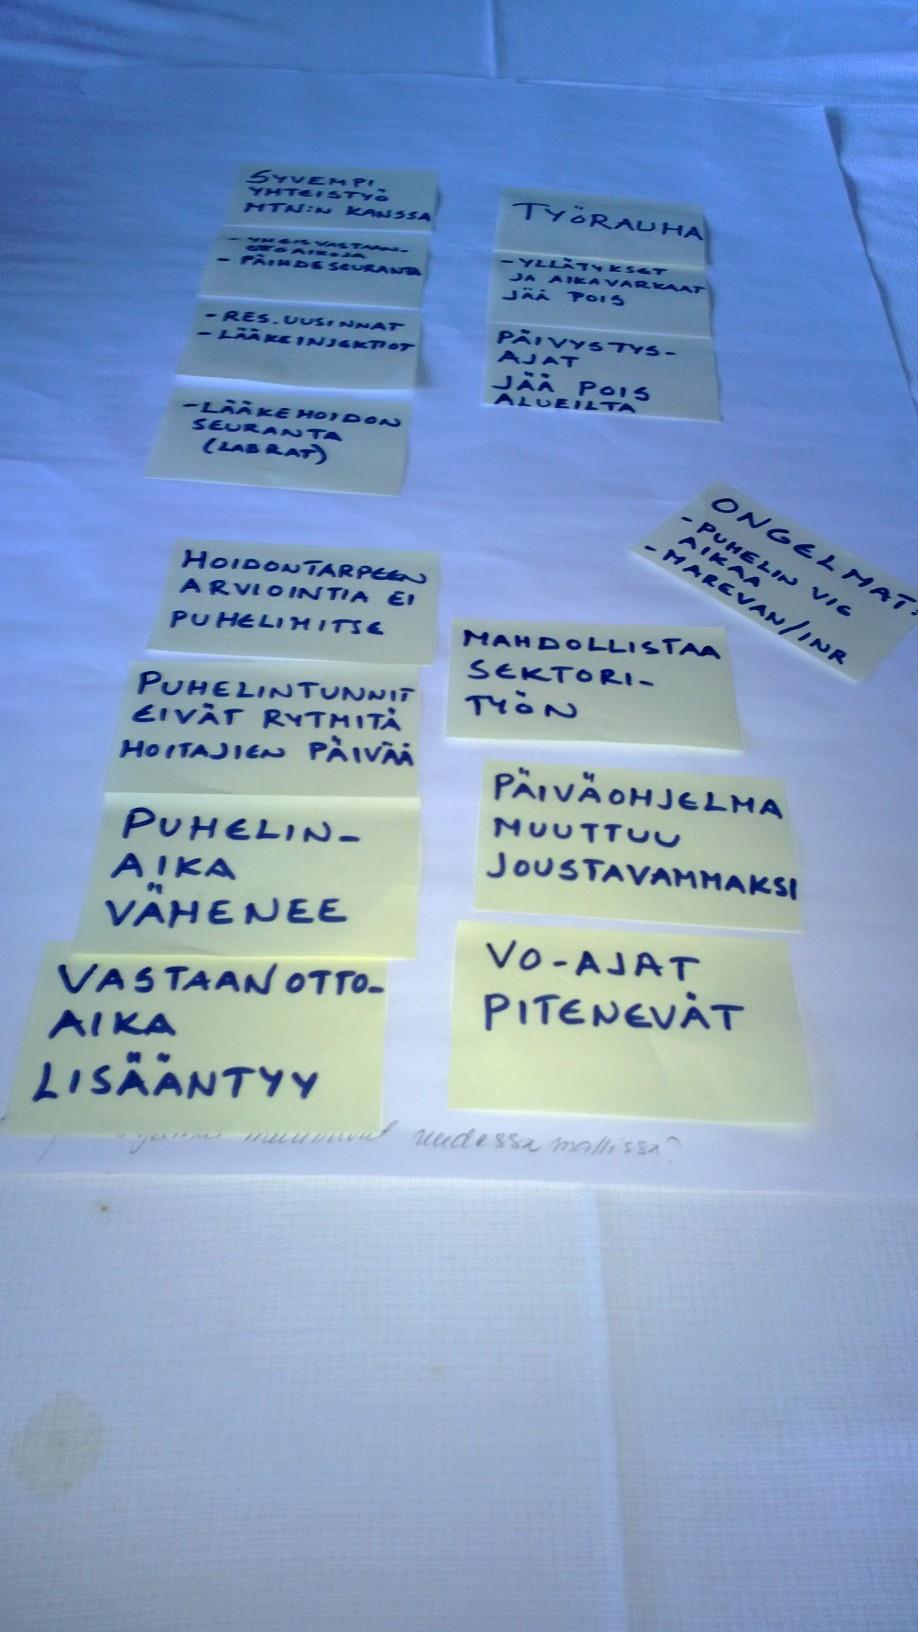 SYVEMPI
YHTEISTYÖ
MTN:N KANSSA
- YHTEISVASTAAN-
OTTOAIKOJA
- PÄIHDESEURANTA
- RES. UUSINNAT
- LÄÄKEINJEKTIOT
- LÄÄKEHOIDON
SEURANTA
(LABRAT)
TYÖRAUHA
- YLLÄTYKSET
JA AIKAVARKAAT
JÄÄ POIS
PÄIVYSTYS-
AJAT
JÄÄ POIS
ALUEILTA
ONGELMAT:
- PUHELIN VIE
AIKAA
- MAREVAN/INR
HOIDONTARPEEN
ARVIOINTIA EI
PUHELIMITSE
PUHELINTUNNIT
EIVÄT RYTMITÄ
HOITAJIEN PÄIVÄÄ
PUHELIN-
AIKA
VÄHENEE
VASTAANOTTO-
AIKA
LISÄÄNTYY
MAHDOLLISTAA
SEKTORI-
TYÖN
PÄIVÄOHJELMA
MUUTTUU
JOUSTAVAMMAKSI
VO-AJAT
PITENEVÄT
uudessa mallissa?